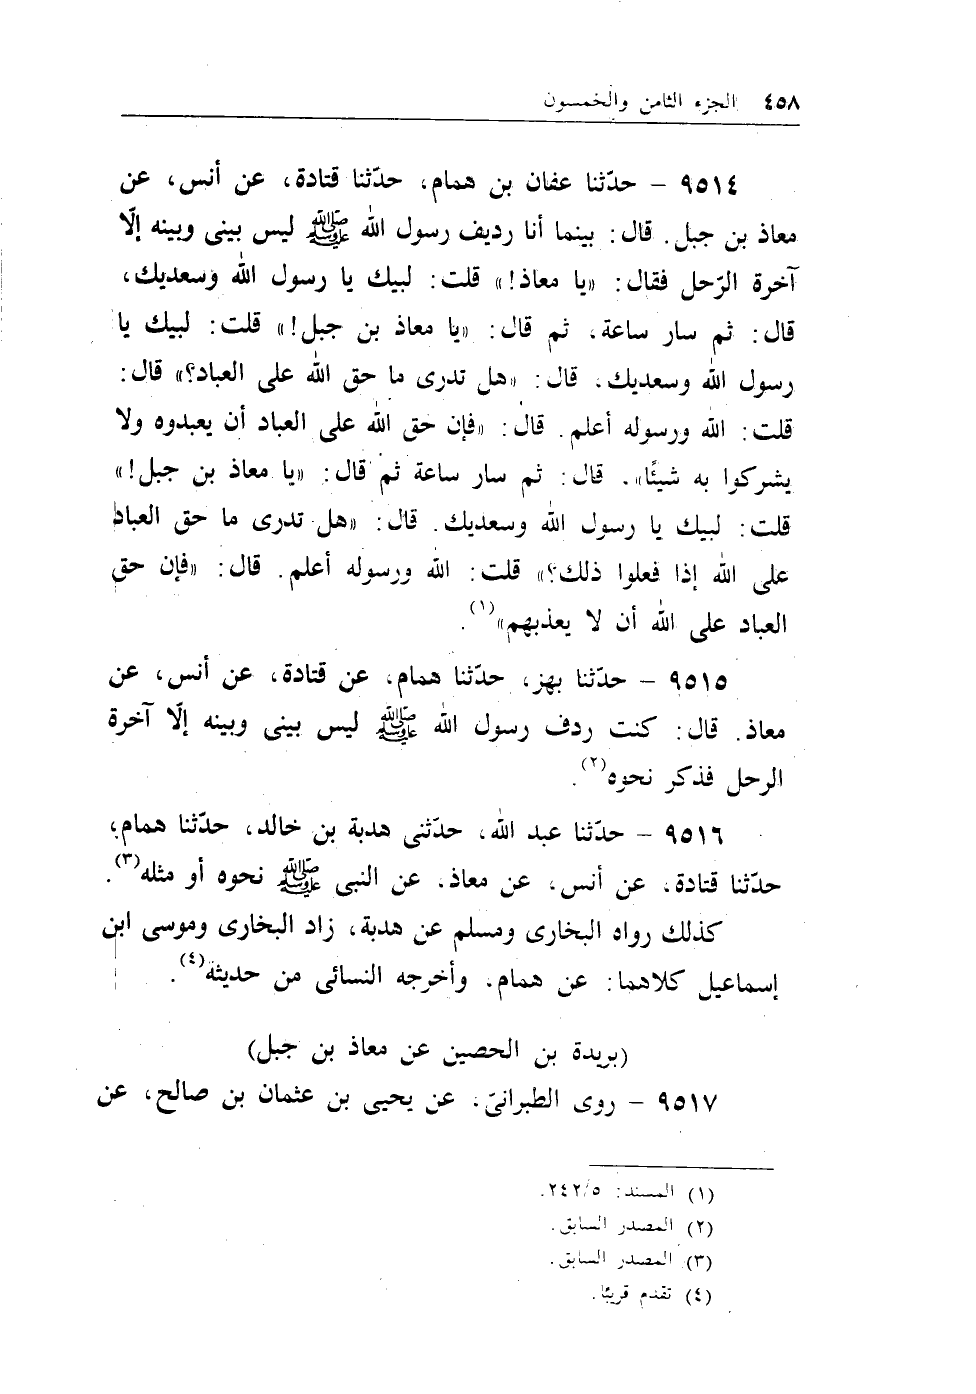 ٤٥٨ الجزء الثامن والخمسون
٩٥١٤ – حدّثنا عفان بن همام، حدّثنا قتادة، عن أنس، عن
معاذ بن جبل. قال: بينما أنا رديف رسول الله ﷺ ليس بينى وبينه إلّا
آخرة الرّحل فقال: «يا معاذ!» قلت: لبيك يا رسول الله وسعديك،
قال: ثم سار ساعة، ثم قال: «يا معاذ بن جبل!» قلت: لبيك يا
رسول الله وسعديك، قال: «هل تدرى ما حق الله على العباد؟» قال:
قلت: الله ورسوله أعلم. قال: «فإن حق الله على العباد أن يعبدوه ولا
يشركوا به شيئًا»، قال: ثم سار ساعة ثم قال: «يا معاذ بن جبل!»
قلت: لبيك يا رسول الله وسعديك. قال: «هل تدرى ما حق العباد
على الله إذا فعلوا ذلك؟» قلت: الله ورسوله أعلم. قال: «فإن حق
العباد على الله أن لا يعذبهم»(١).
٩٥١٥ – حدّثنا بهز، حدّثنا همام، عن قتادة، عن أنس، عن
معاذ. قال: كنت ردف رسول الله ﷺ ليس بينى وبينه إلّا آخرة
الرحل فذكر نحوه(٢).
٩٥١٦ – حدّثنا عبد الله، حدّثنى هدبة بن خالد، حدّثنا همام،
حدّثنا قتادة، عن أنس، عن معاذ. عن النبى ﷺ نحوه أو مثله(٣).
كذلك رواه البخارى ومسلم عن هدبة، زاد البخارى وموسى ابن
إسماعيل كلاهما: عن همام، وأخرجه النسائى من حديثه(٤).
(بريدة بن الحصين عن معاذ بن جبل)
٩٥١٧ – روى الطبرانىّ، عن يحيى بن عثمان بن صالح، عن
(١) المسند: ٢٤٢/٥.
(٢) المصدر السابق.
(٣) المصدر السابق.
(٤) تقدم قريبًا.